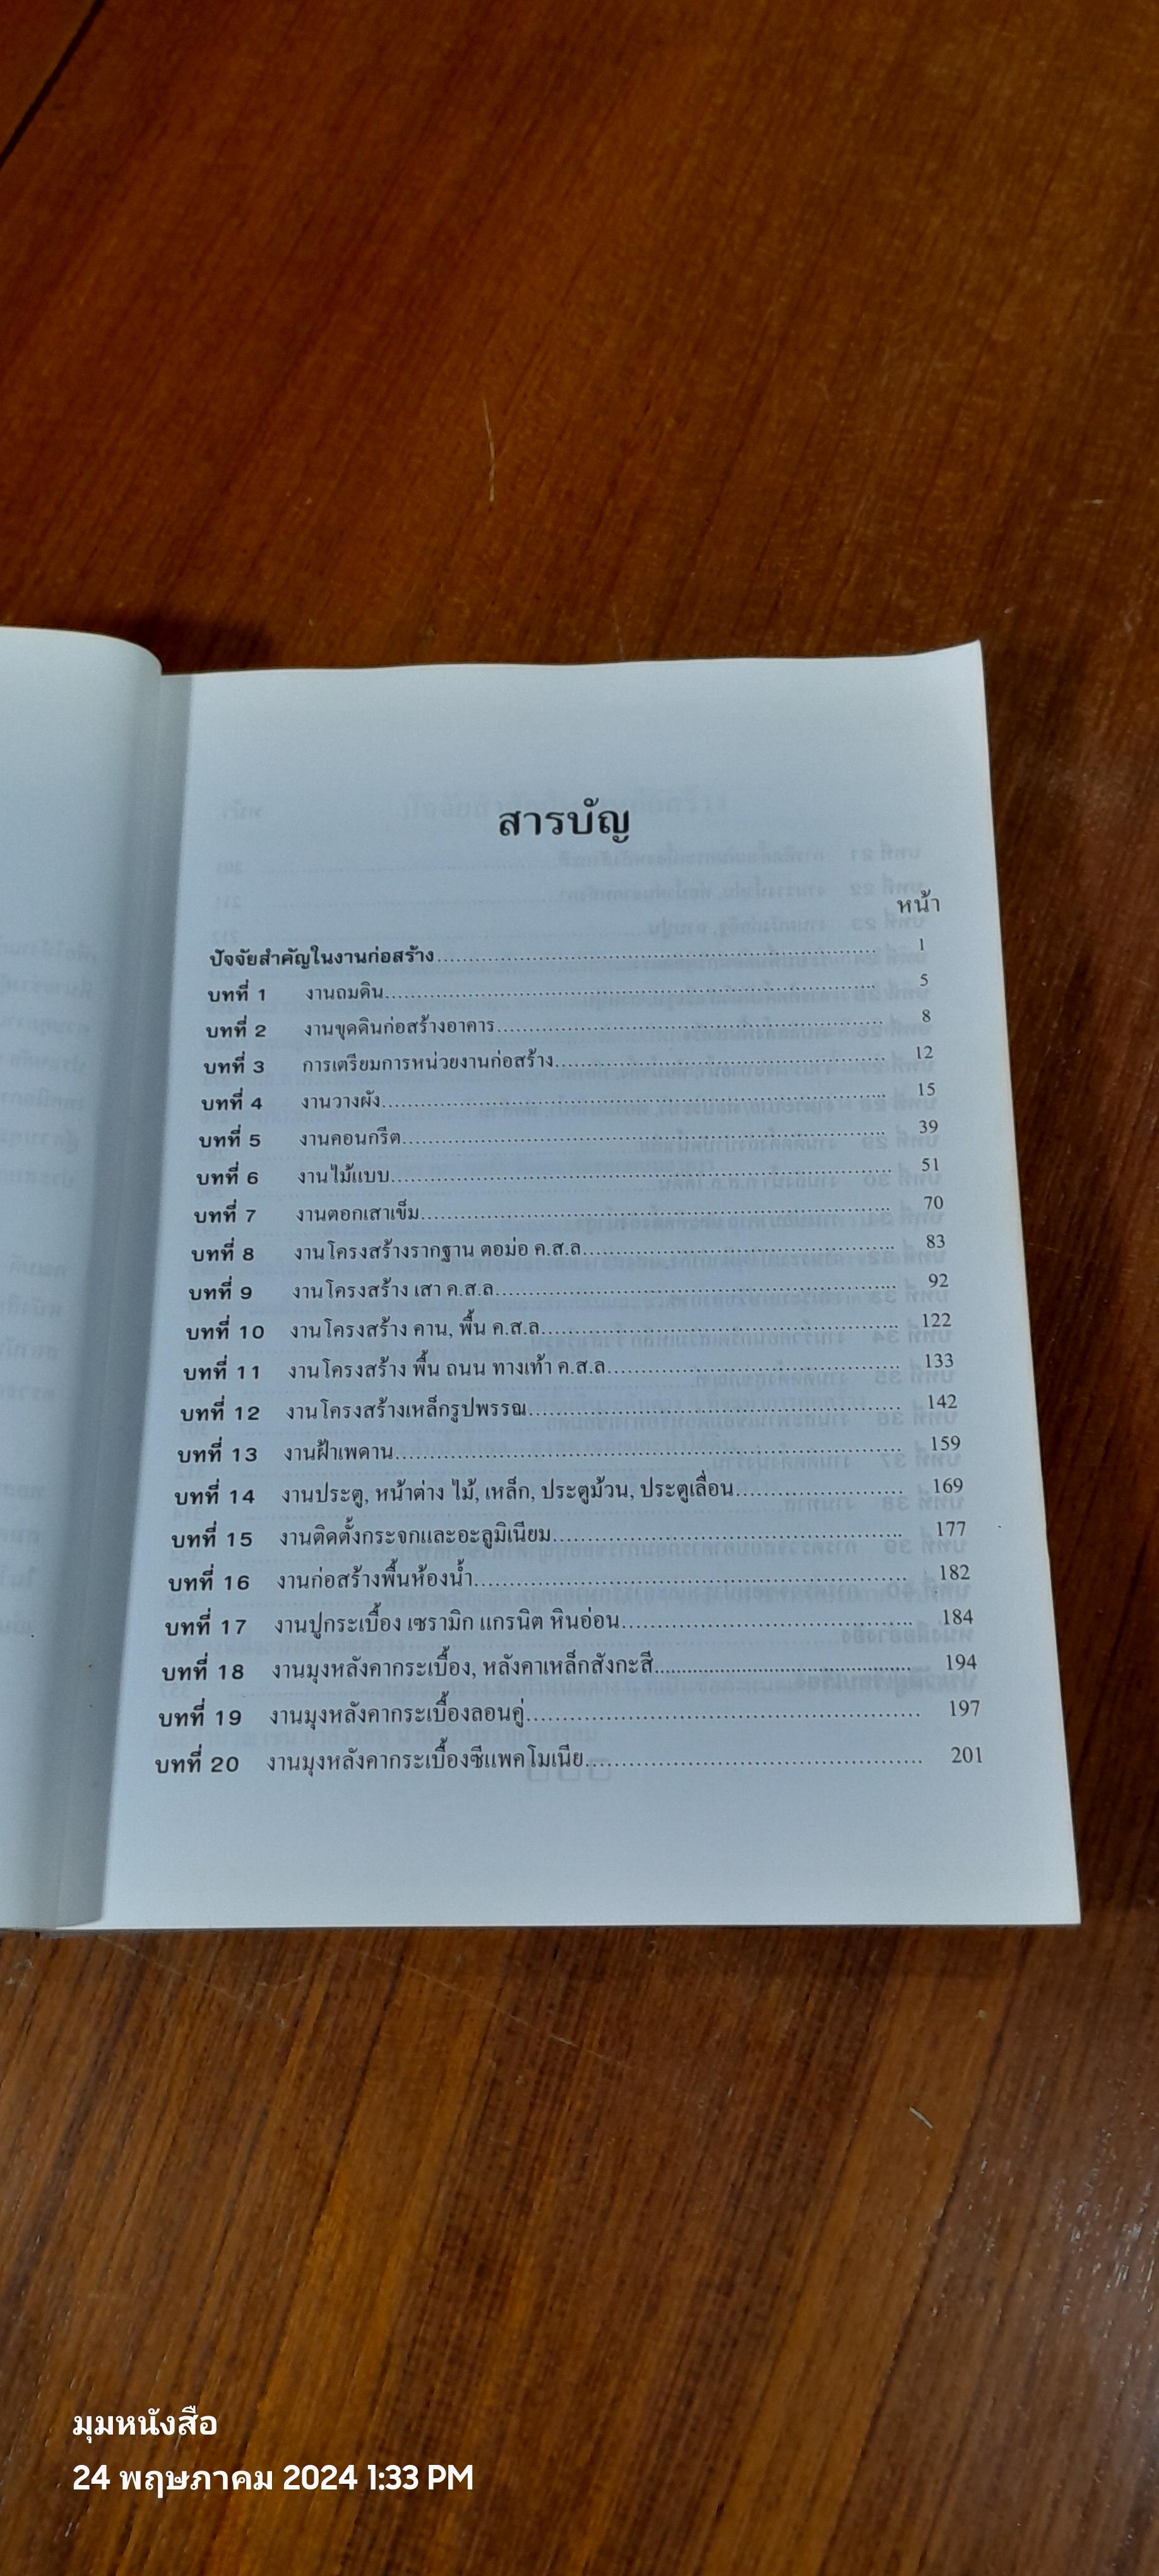 สารบัญ
หน้า
ปัจจัยสำคัญในงานก่อสร้าง 1
บทที่ 1 งานถมดิน 5
บทที่ 2 งานขุดดินก่อสร้างอาคาร 8
บทที่ 3 การเตรียมการหน่วยงานก่อสร้าง 12
บทที่ 4 งานวางผัง 15
บทที่ 5 งานคอนกรีต 39
บทที่ 6 งานไม้แบบ 51
บทที่ 7 งานตอกเสาเข็ม 70
บทที่ 8 งานโครงสร้างรากฐาน ตอม่อ ค.ส.ล. 83
บทที่ 9 งานโครงสร้าง เสา ค.ส.ล. 92
บทที่ 10 งานโครงสร้าง คาน, พื้น ค.ส.ล. 122
บทที่ 11 งานโครงสร้าง พื้น ถนน ทางเท้า ค.ส.ล. 133
บทที่ 12 งานโครงสร้างเหล็กรูปพรรณ 142
บทที่ 13 งานฝ้าเพดาน 159
บทที่ 14 งานประตู, หน้าต่าง ไม้, เหล็ก, ประตูม้วน, ประตูเลื่อน 169
บทที่ 15 งานติดตั้งกระจกและอะลูมิเนียม 177
บทที่ 16 งานก่อสร้างพื้นห้องน้ำ 182
บทที่ 17 งานปูกระเบื้อง เซรามิก แกรนิต หินอ่อน 184
บทที่ 18 งานมุงหลังคากระเบื้อง, หลังคาเหล็กสังกะสี 194
บทที่ 19 งานมุงหลังคากระเบื้องลอนคู่ 197
บทที่ 20 งานมุงหลังคากระเบื้องซีแพคโมเนีย 201
มุมหนังสือ
24 พฤษภาคม 2024 1:33 PM